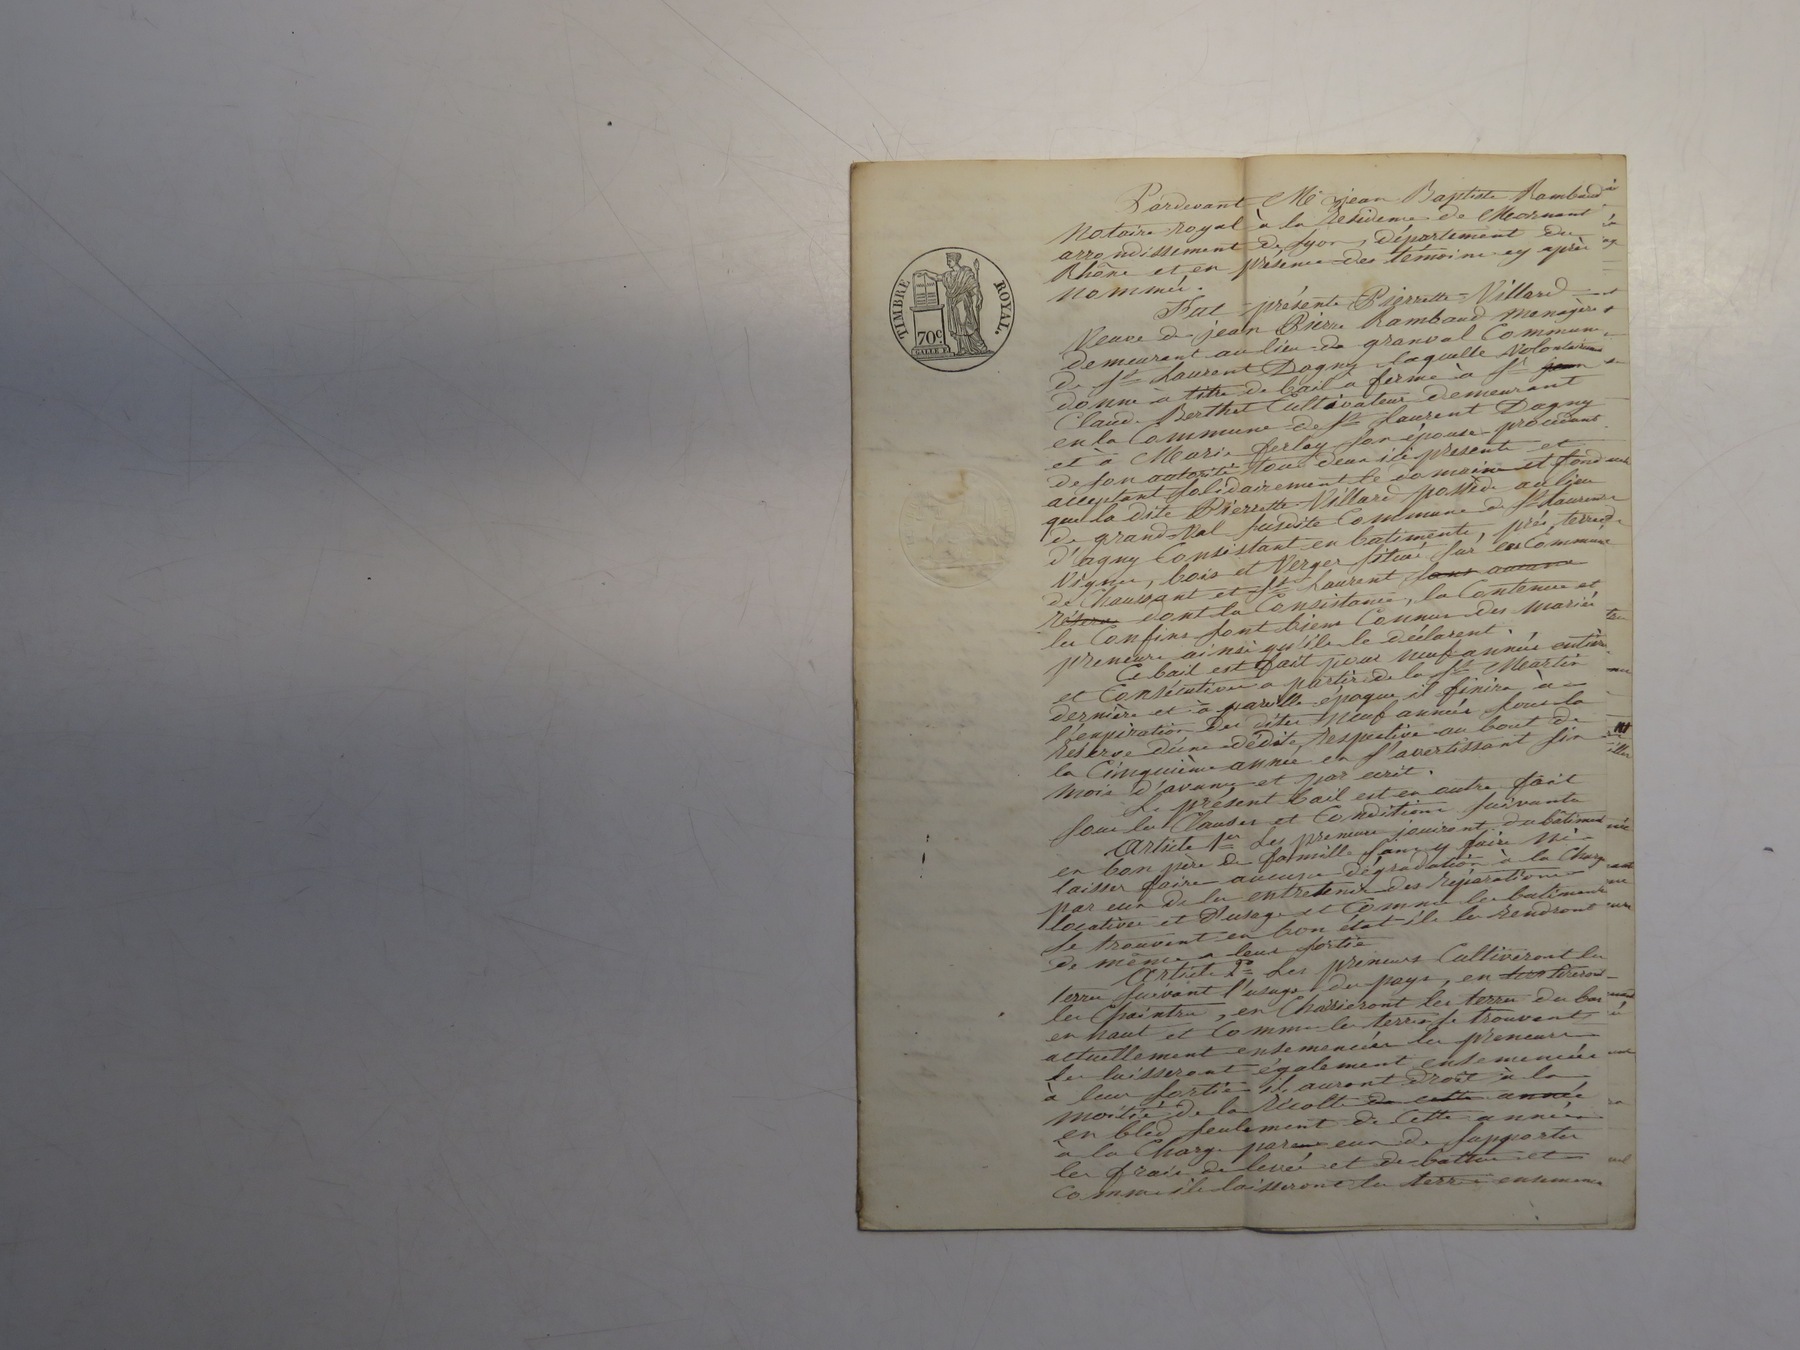 TIMBRE ROYAL.
70c
Pardevant Me jean Baptiste Rambaud
Notaire royal à la residence de Mornant
arrondissement de Lyon, département du
Rhône et en présence des témoins cy après
nommés.
Fut présente Pierrette Villard
Veuve de jean Pierre Rambaud menagère
demeurant au lieu de granval Commune
de St Laurent Dagny laquelle volontairement
donne à titre de bail à ferme à Sr jean
Claude Berthet Cultivateur demeurant
en la Commune de St Laurent Dagny
et à Marie ferley son épouse procédant
de son autorité tous deux ici présents et
acceptant solidairement le domaine et fond
que la dite Pierrette Villard possède au lieu
de grand-Val susdite Commune de St Laurent
d'agny Consistant en batiments, prés, terres
Vignes, bois et Verger situés sur les Communes
de Chaussant et St Laurent sans aucune
réserve dont la Consistance, la Contenue et
les Confins sont biens Connus des mariés
preneurs ainsi qu'ils le déclarent.
Ce bail est fait pour neuf années entières
et Consécutives a partir de la St Martin
dernière et à pareille époque il finira à
l'expiration des dites neuf années sous la
réserve d'une dédite respective au bout de
la Cinquième année en s'avertissant six
mois d'avance et par écrit.
Le présent bail est en outre fait
sous les Clauses et Conditions suivants
Article 1er Les preneurs jouiront du batiment
en bon père de famille sans y faire ni
laisser faire aucune dégradation à la Charge
par eux de les entretenir des réparations
locatives et d'usage et Comme les batiments
se trouvent en bon état ils les rendront
de même a leur sortie
Article 2e Les preneurs Cultiveront les
terres suivant l'usage du pays, en
les Chaintres, en Charrieront les terres du bas
en haut et Comme les terres se trouvent
actuellement ensemencées les preneurs
les laisseront également ensemencées
à leur sortie ils auront droit à la
moitié de la récolte de cette année
en bled seulement de Cette année
à la Charge par eux de supporter
les frais de levée et de battue et
Comme ils laisseront les terres ensemen